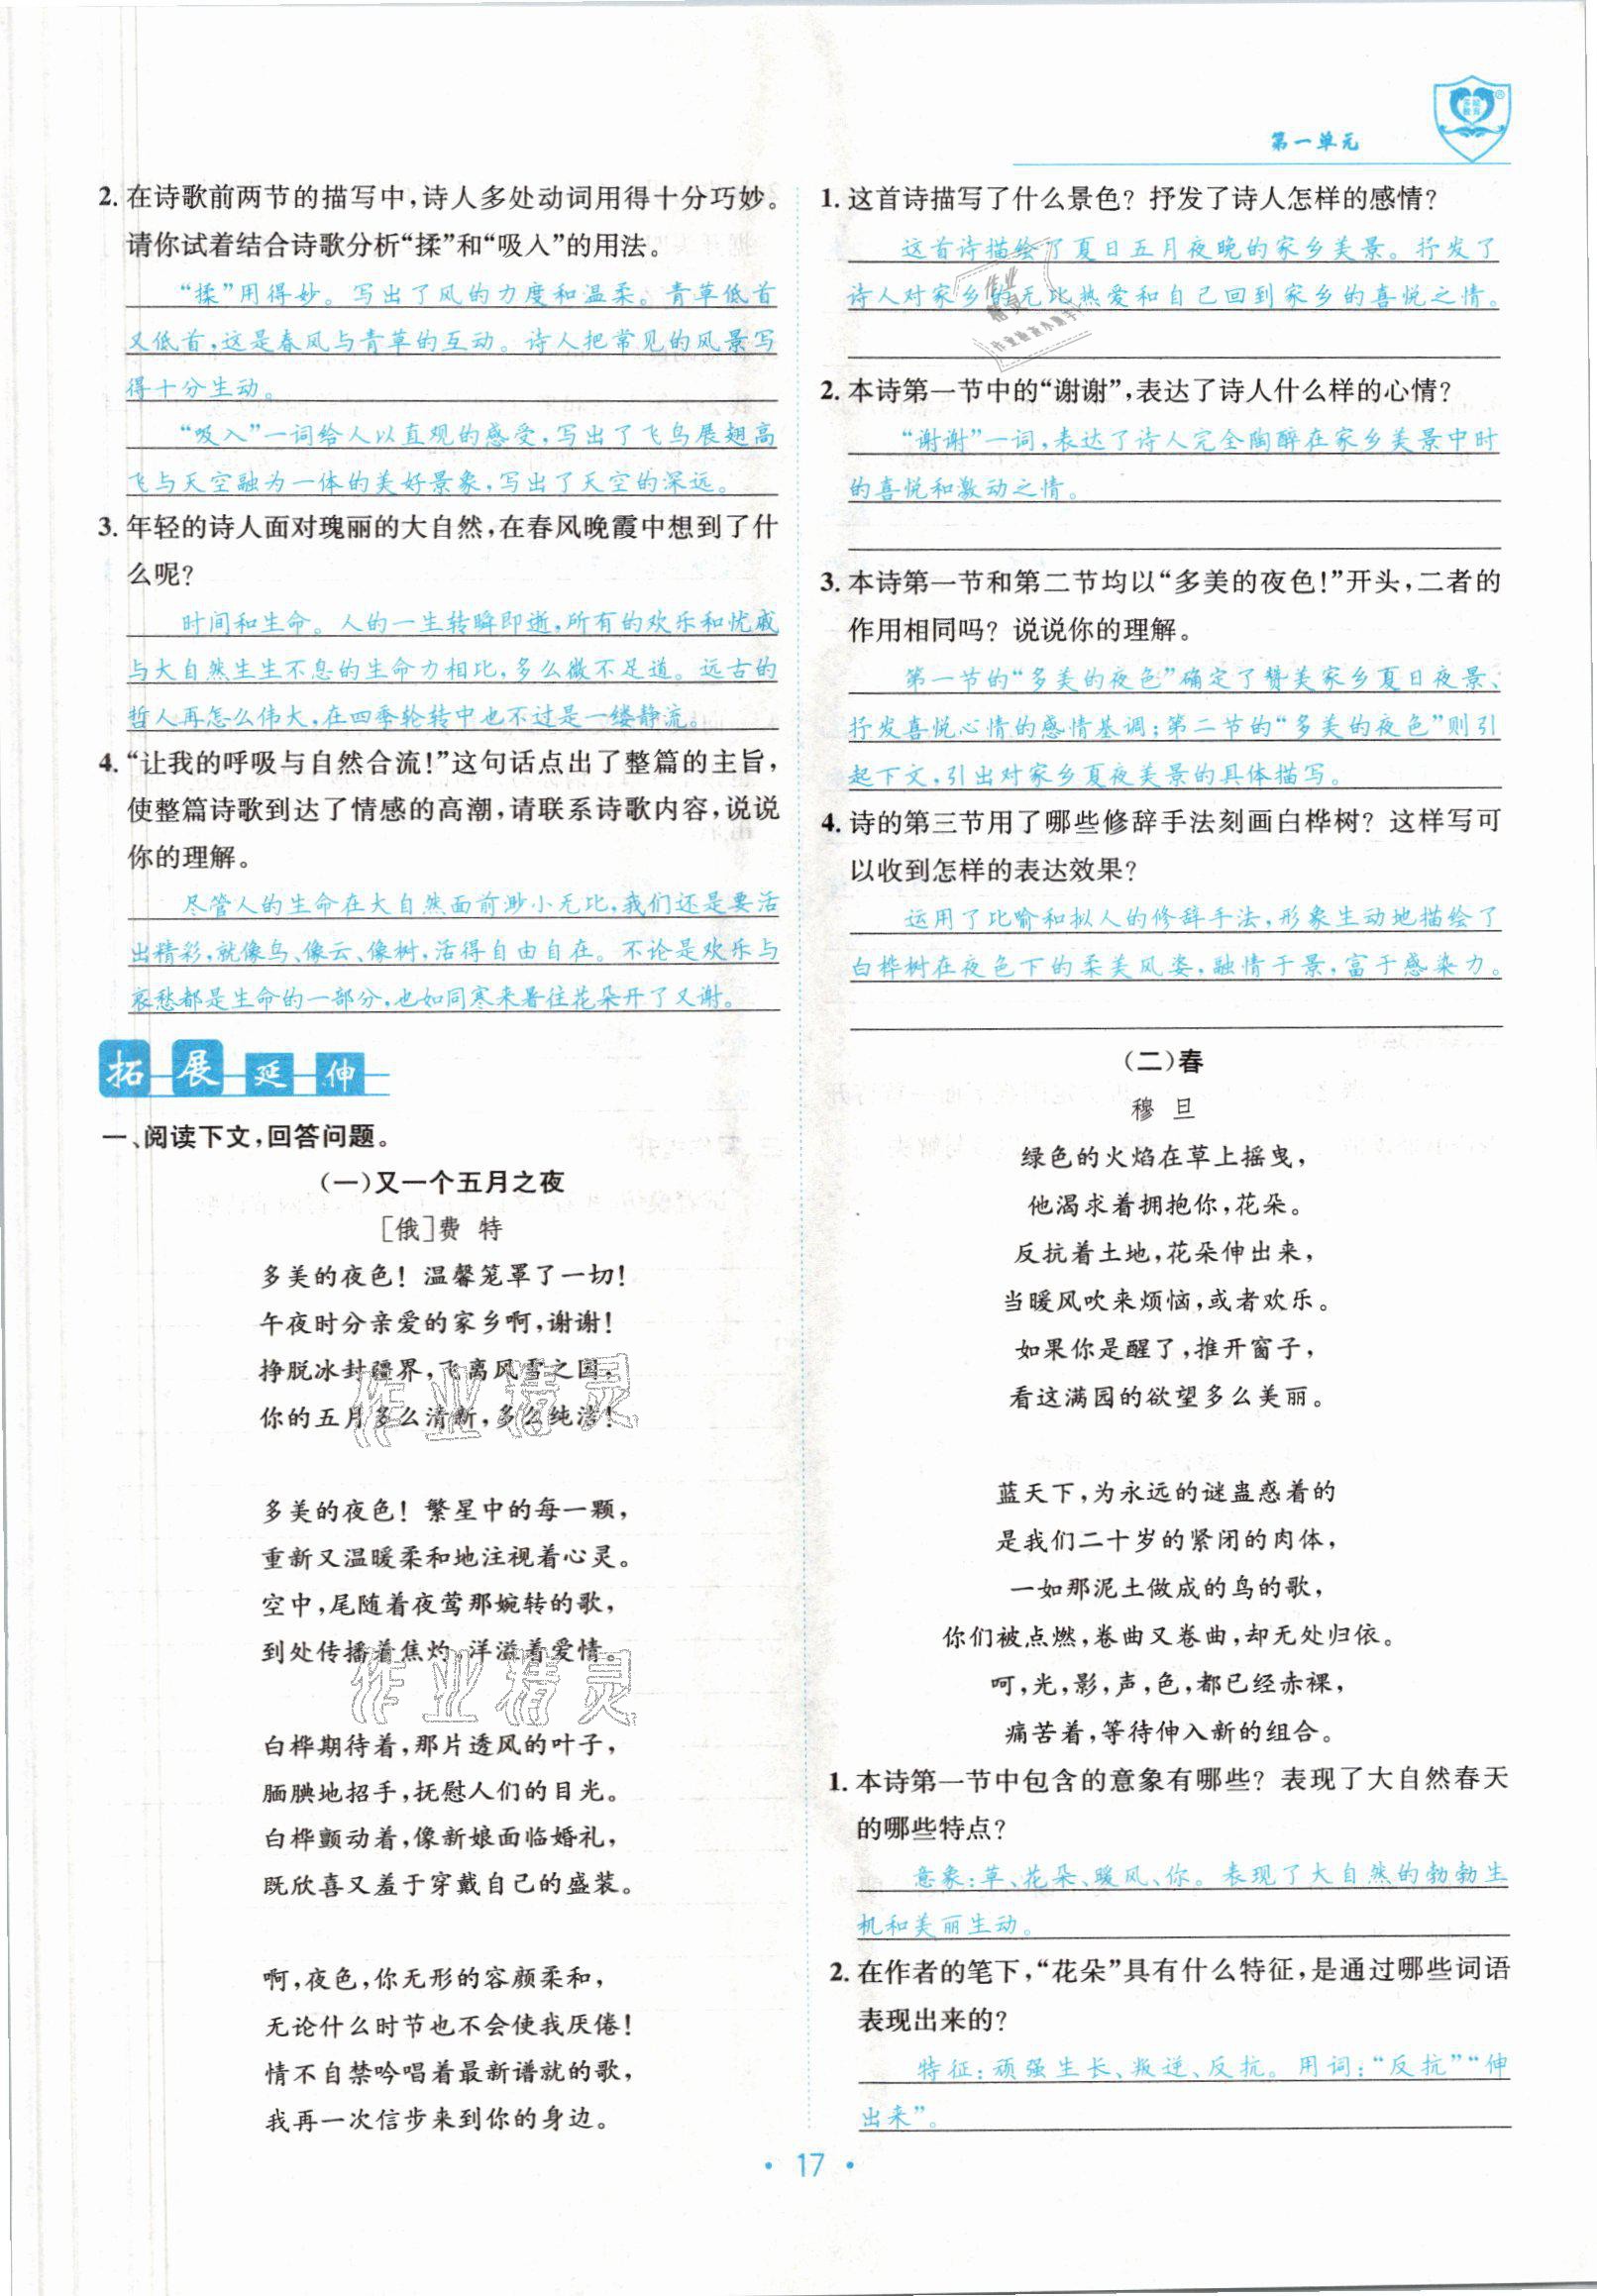 第一单元
2. 在诗歌前两节的描写中，诗人多处动词用得十分巧妙。
请你试着结合诗歌分析“揉”和“吸入”的用法。
“揉”用得妙。写出了风的力度和温柔。青草低首
又低首，这是春风与青草的互动。诗人把常见的风景写
得十分生动。
“吸入”一词给人以直观的感受，写出了飞鸟展翅高
飞与天空融为一体的美好景象，写出了天空的深远。
3. 年轻的诗人面对瑰丽的大自然，在春风晚霞中想到了什
么呢？
时间和生命。人的一生转瞬即逝，所有的欢乐和忧戚
与大自然生生不息的生命力相比，多么微不足道。远古的
哲人再怎么伟大，在四季轮转中也不过是一缕静流。
4. “让我的呼吸与自然合流！”这句话点出了整篇的主旨，
使整篇诗歌到达了情感的高潮，请联系诗歌内容，说说
你的理解。
尽管人的生命在大自然面前渺小无比，我们还是要活
出精彩，就像鸟、像云、像树，活得自由自在。不论是欢乐与
哀愁都是生命的一部分，也如同寒来暑往花朵开了又谢。
拓展延伸
一、阅读下文，回答问题。
（一）又一个五月之夜
［俄］费 特
多美的夜色！温馨笼罩了一切！
午夜时分亲爱的家乡啊，谢谢！
挣脱冰封疆界，飞离风雪之国，
你的五月多么清新，多么纯洁！
多美的夜色！繁星中的每一颗，
重新又温暖柔和地注视着心灵。
空中，尾随着夜莺那婉转的歌，
到处传播着焦灼，洋溢着爱情。
白桦期待着，那片透风的叶子，
腼腆地招手，抚慰人们的目光。
白桦颤动着，像新娘面临婚礼，
既欣喜又羞于穿戴自己的盛装。
啊，夜色，你无形的容颜柔和，
无论什么时节也不会使我厌倦！
情不自禁吟唱着最新谱就的歌，
我再一次信步来到你的身边。
1. 这首诗描写了什么景色？抒发了诗人怎样的感情？
这首诗描绘了夏日五月夜晚的家乡美景。抒发了
诗人对家乡的无比热爱和自己回到家乡的喜悦之情。
2. 本诗第一节中的“谢谢”，表达了诗人什么样的心情？
“谢谢”一词，表达了诗人完全陶醉在家乡美景中时
的喜悦和激动之情。
3. 本诗第一节和第二节均以“多美的夜色！”开头，二者的
作用相同吗？说说你的理解。
第一节的“多美的夜色”确定了赞美家乡夏日夜景、
抒发喜悦心情的感情基调；第二节的“多美的夜色”则引
起下文，引出对家乡夏夜美景的具体描写。
4. 诗的第三节用了哪些修辞手法刻画白桦树？这样写可
以收到怎样的表达效果？
运用了比喻和拟人的修辞手法，形象生动地描绘了
白桦树在夜色下的柔美风姿，融情于景，富于感染力。
（二）春
穆 旦
绿色的火焰在草上摇曳，
他渴求着拥抱你，花朵。
反抗着土地，花朵伸出来，
当暖风吹来烦恼，或者欢乐。
如果你是醒了，推开窗子，
看这满园的欲望多么美丽。
蓝天下，为永远的谜蛊惑着的
是我们二十岁的紧闭的肉体，
一如那泥土做成的鸟的歌，
你们被点燃，卷曲又卷曲，却无处归依。
呵，光，影，声，色，都已经赤裸，
痛苦着，等待伸入新的组合。
1. 本诗第一节中包含的意象有哪些？表现了大自然春天
的哪些特点？
意象：草、花朵、暖风、你。表现了大自然的勃勃生
机和美丽生动。
2. 在作者的笔下，“花朵”具有什么特征，是通过哪些词语
表现出来的？
特征：顽强生长、叛逆、反抗。用词：“反抗”“伸
出来”。
· 17 ·
作业精灵
作业精灵